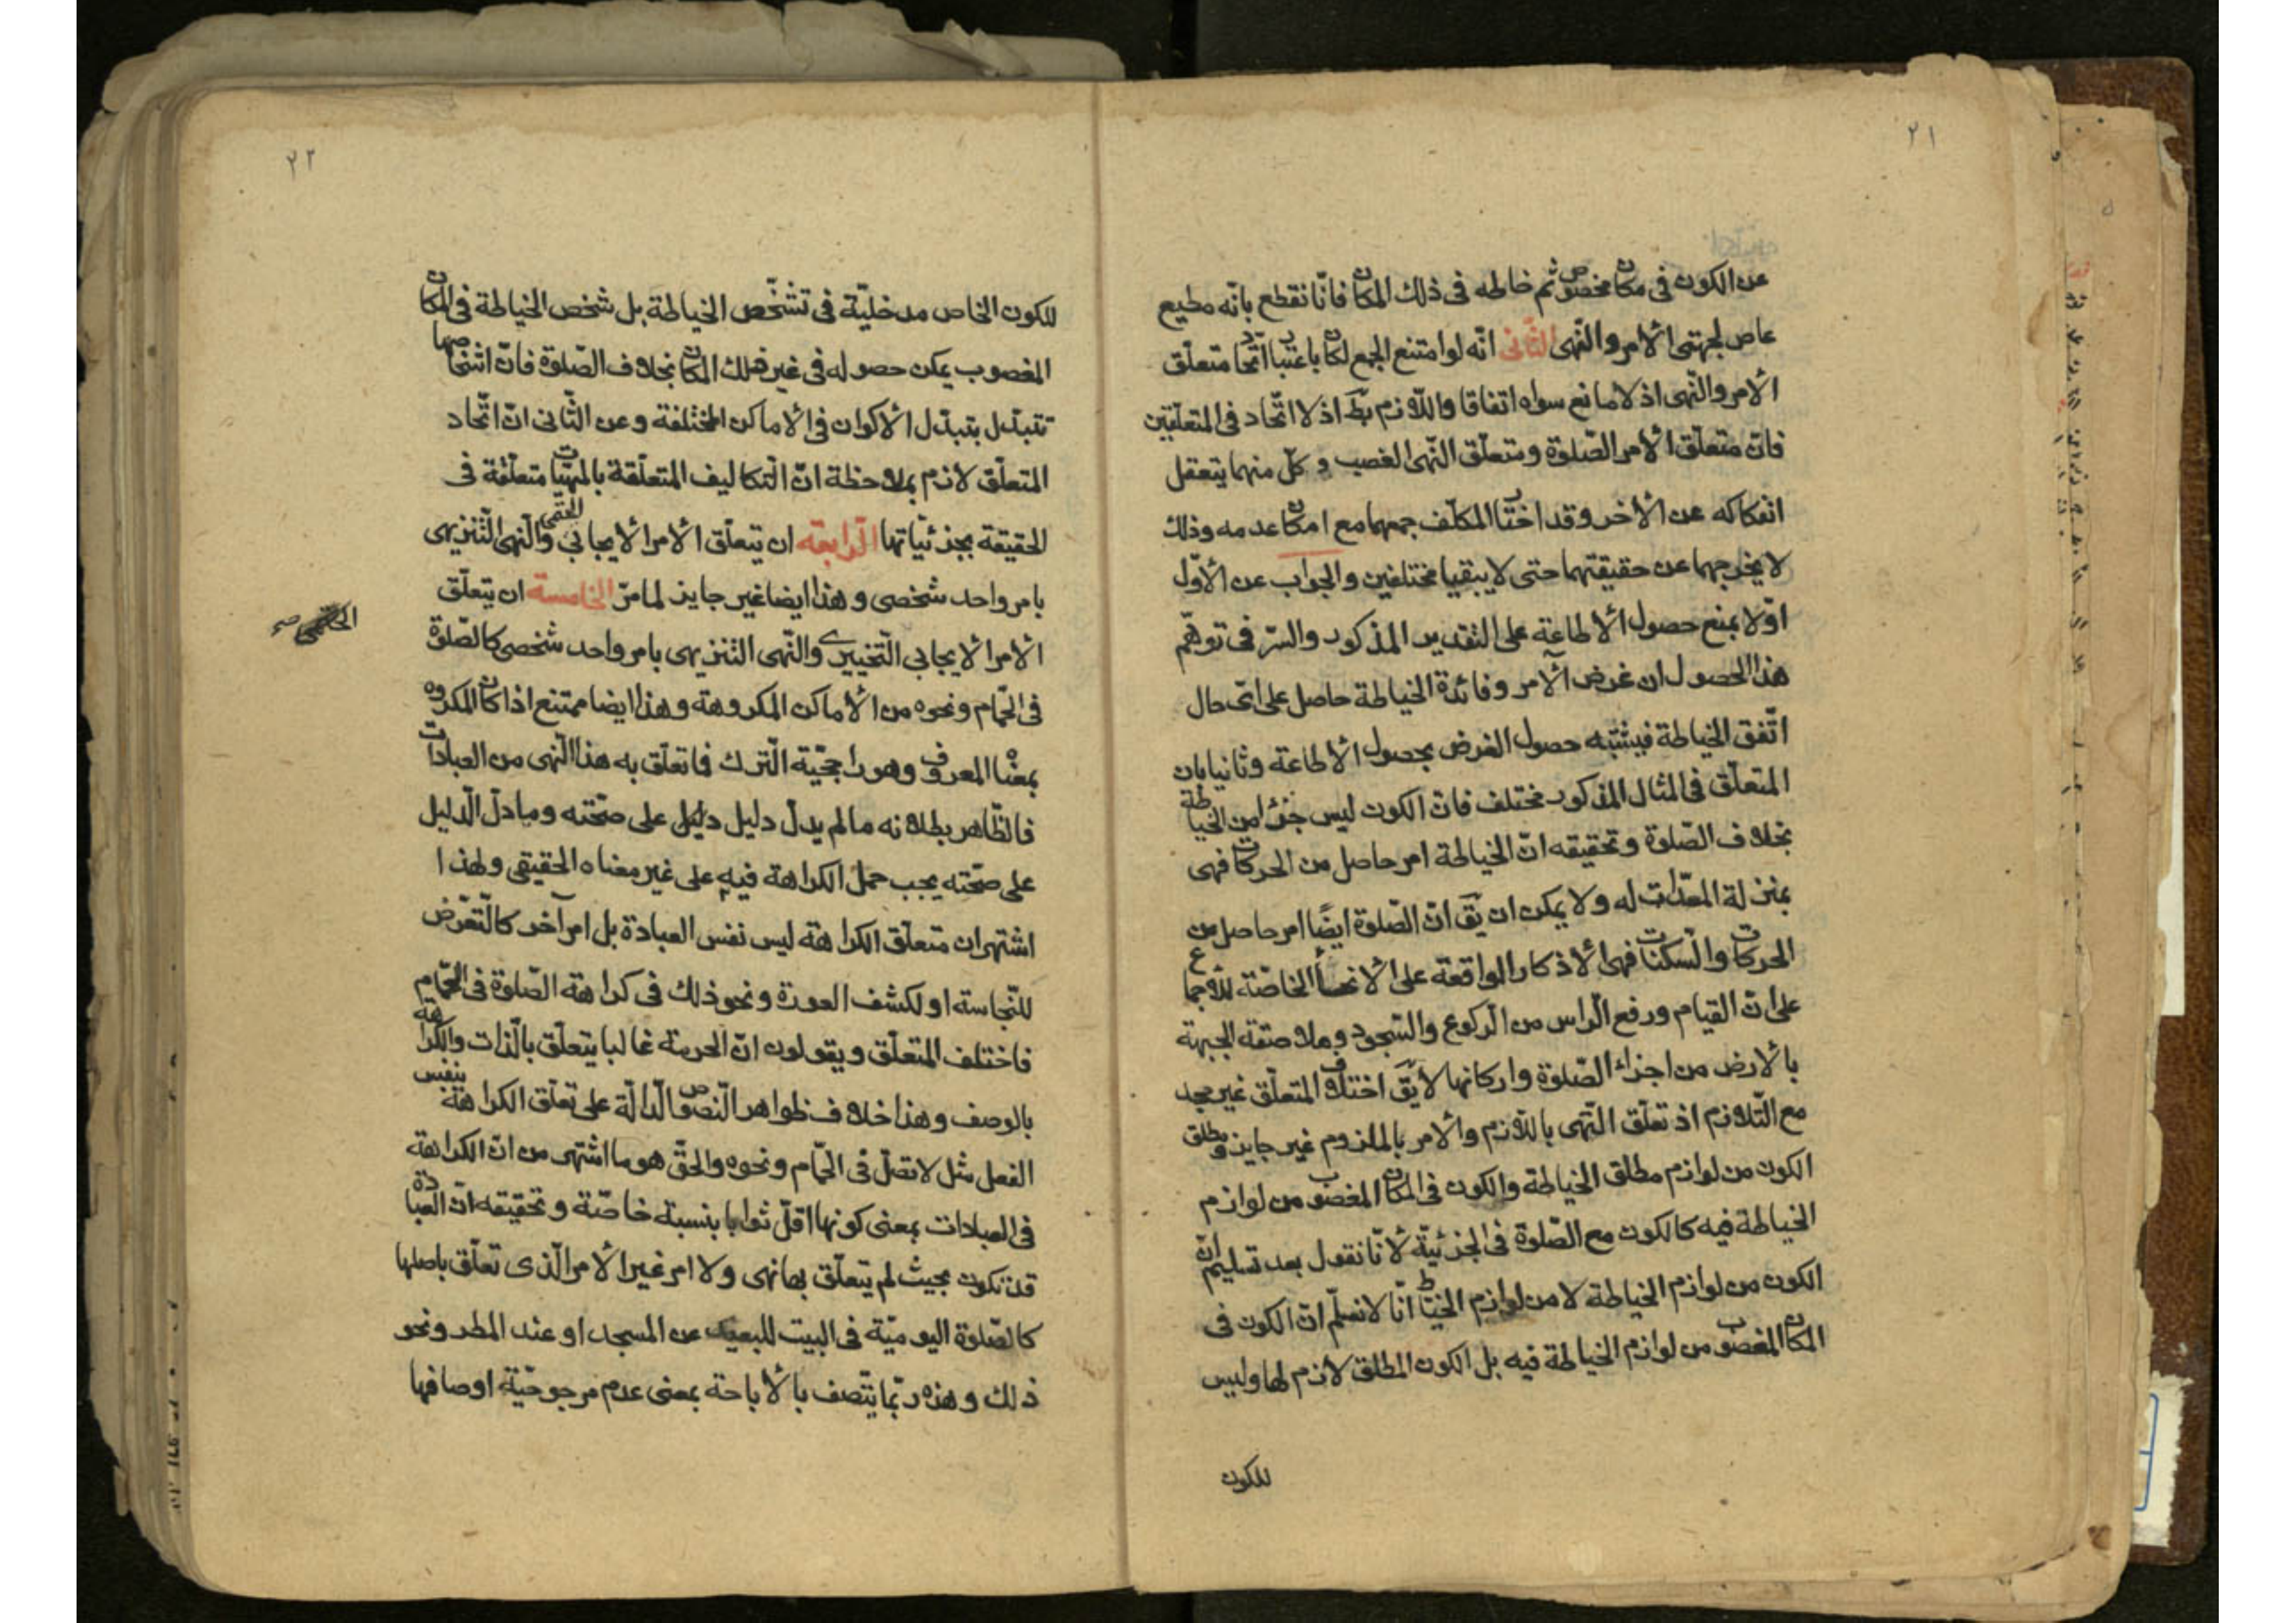 ٢١
عن الكون في مكان مخصوص ثم خاطه في ذلك المكان فانّا نقطع بانّه مطيع
عاص لجهتي الامر والنّهى الثّانى انّه لو امتنع الجمع لكان باعتبار اتّحاد متعلّق
الامر والنّهى اذ لا مانع سواه اتفاقا واللّازم بطّ اذ لا اتّحاد في المتعلّقين
فانّ متعلّق الامر الصّلوة ومتعلّق النّهى الغصب و كلّ منهما يتعقل
انفكاكه عن الاخر وقد اختار المكلّف جمعهما مع امكان عدمه وذلك
لا يخرجهما عن حقيقتهما حتى لا يبقيا مختلفين والجواب عن الاوّل
اوّلا بمنع حصول الاطاعة على التقدير المذكور والسّر فى توهّم
هذا الحصول ان غرض الآمر وفائدة الخياطة حاصل على اىّ حال
اتّفق الخياطة فيشتبه حصول الغرض بحصول الاطاعة وثانيا بان
المتعلّق في المثال المذكور مختلف فانّ الكون ليس جزءا من الخياطة
بخلاف الصّلوة وتحقيقه انّ الخياطة امر حاصل من الحركات فهى
بمنزلة المعدّات له ولا يمكن ان يقّ انّ الصّلوة ايضًا امر حاصل من
الحركات والسكنات فهى الاذكار الواقعة على الانحاء الخاصّة للاجماع
على انّ القيام ورفع الراس من الرّكوع والسّجود وملاصقة الجبهة
بالارض من اجزاء الصّلوة واركانها لا يقّ اختلاف المتعلّق غير مجد
مع التّلازم اذ تعلّق النّهى باللّازم والامر بالملزوم غير جايز ومطلق
الكون من لوازم مطلق الخياطة والكون في المكان المغصوب من لوازم
الخياطة فيه كالكون مع الصّلوة في الجزئيّة لانّا نقول بعد تسليم انّ
الكون من لوازم الخياطة لا من لوازم الخيّاط انّا لا نسلّم انّ الكون في
المكان المغصوب من لوازم الخياطة فيه بل الكون المطلق لازم لها وليس
للكون
٢٢
للكون الخاص مدخليّة في تشخّص الخياطة بل شخص الخياطة في المكان
المغصوب يمكن حصوله في غير ذلك المكان بخلاف الصّلوة فانّ اشخاصها
تتبدّل بتبدّل الاكوان في الاماكن المختلفة وعن الثّانى انّ اتّحاد
المتعلّق لازم بملاحظة انّ التكاليف المتعلّقة بالمهيّات متعلّقة في
الحقيقة بجزئيّاتها الرّابعة ان يتعلّق الامر الايجابي والنّهى التّنزيهى
بامر واحد شخصى و هذا ايضا غير جايز لما مرّ الخامسة ان يتعلّق
الامر الايجابي التّخييرى والنّهى التنزيهى بامر واحد شخصى كالصّلوة
في الحّمام ونحوه من الاماكن المكروهة وهذا ايضا ممتنع اذا كان المكروه
بمعناه المعروف وهو راجحيّة التّرك فما تعلّق به هذا النّهى من العبادات
فالظّاهر بطلانه ما لم يدلّ دليل دليل على صحّته وما دلّ الّدليل
على صحّته يجب حمل الكراهة فيه على غير معناه الحقيقي ولهذا
اشتهر ان متعلّق الكراهة ليس نفس العبادة بل امر آخر كالتّعرّض
للنّجاسة او لكشف العورة ونحو ذلك في كراهة الصّلوة في الحّمام
فاختلف المتعلّق و يقولون انّ الحرمة غالبا يتعلّق بالذّات والكراهة
بالوصف وهذا خلاف ظواهر النّصوص الدّالّة على تعلّق الكراهة بنفس
الفعل مثل لا تصلّ في الحّمام ونحوه والحقّ هو ما اشتهر من انّ الكراهة
في العبادات بمعنى كونها اقلّ ثوابا بنسبة خاصّة وتحقيقه انّ العبادة
قد تكون بحيث لم يتعلّق بها نهى ولا امر غير الامر الّذى تعلّق باصلها
كالصّلوة اليوميّة في البيت للبعيد عن المسجد او عند المطر ونحو
ذلك وهذه ربّما يتّصف بالاباحة بمعنى عدم مرجوحيّة اوصافها